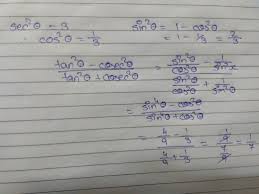 sec²θ = 3
cos²θ = 1/3
sin²θ = 1 - cos²θ
= 1 - 1/3 = 2/3
(tan²θ - cosec²θ)/(tan²θ + cosec²θ) = (sin²θ/cos²θ - 1/sin²θ)/(sin²θ/cos²θ + 1/sin²θ)
= (sin⁴θ - cos²θ)/(sin⁴θ + cos²θ)
= (4/9 - 1/3)/(4/9 + 1/3) = (1/9)/(7/9) = 1/7